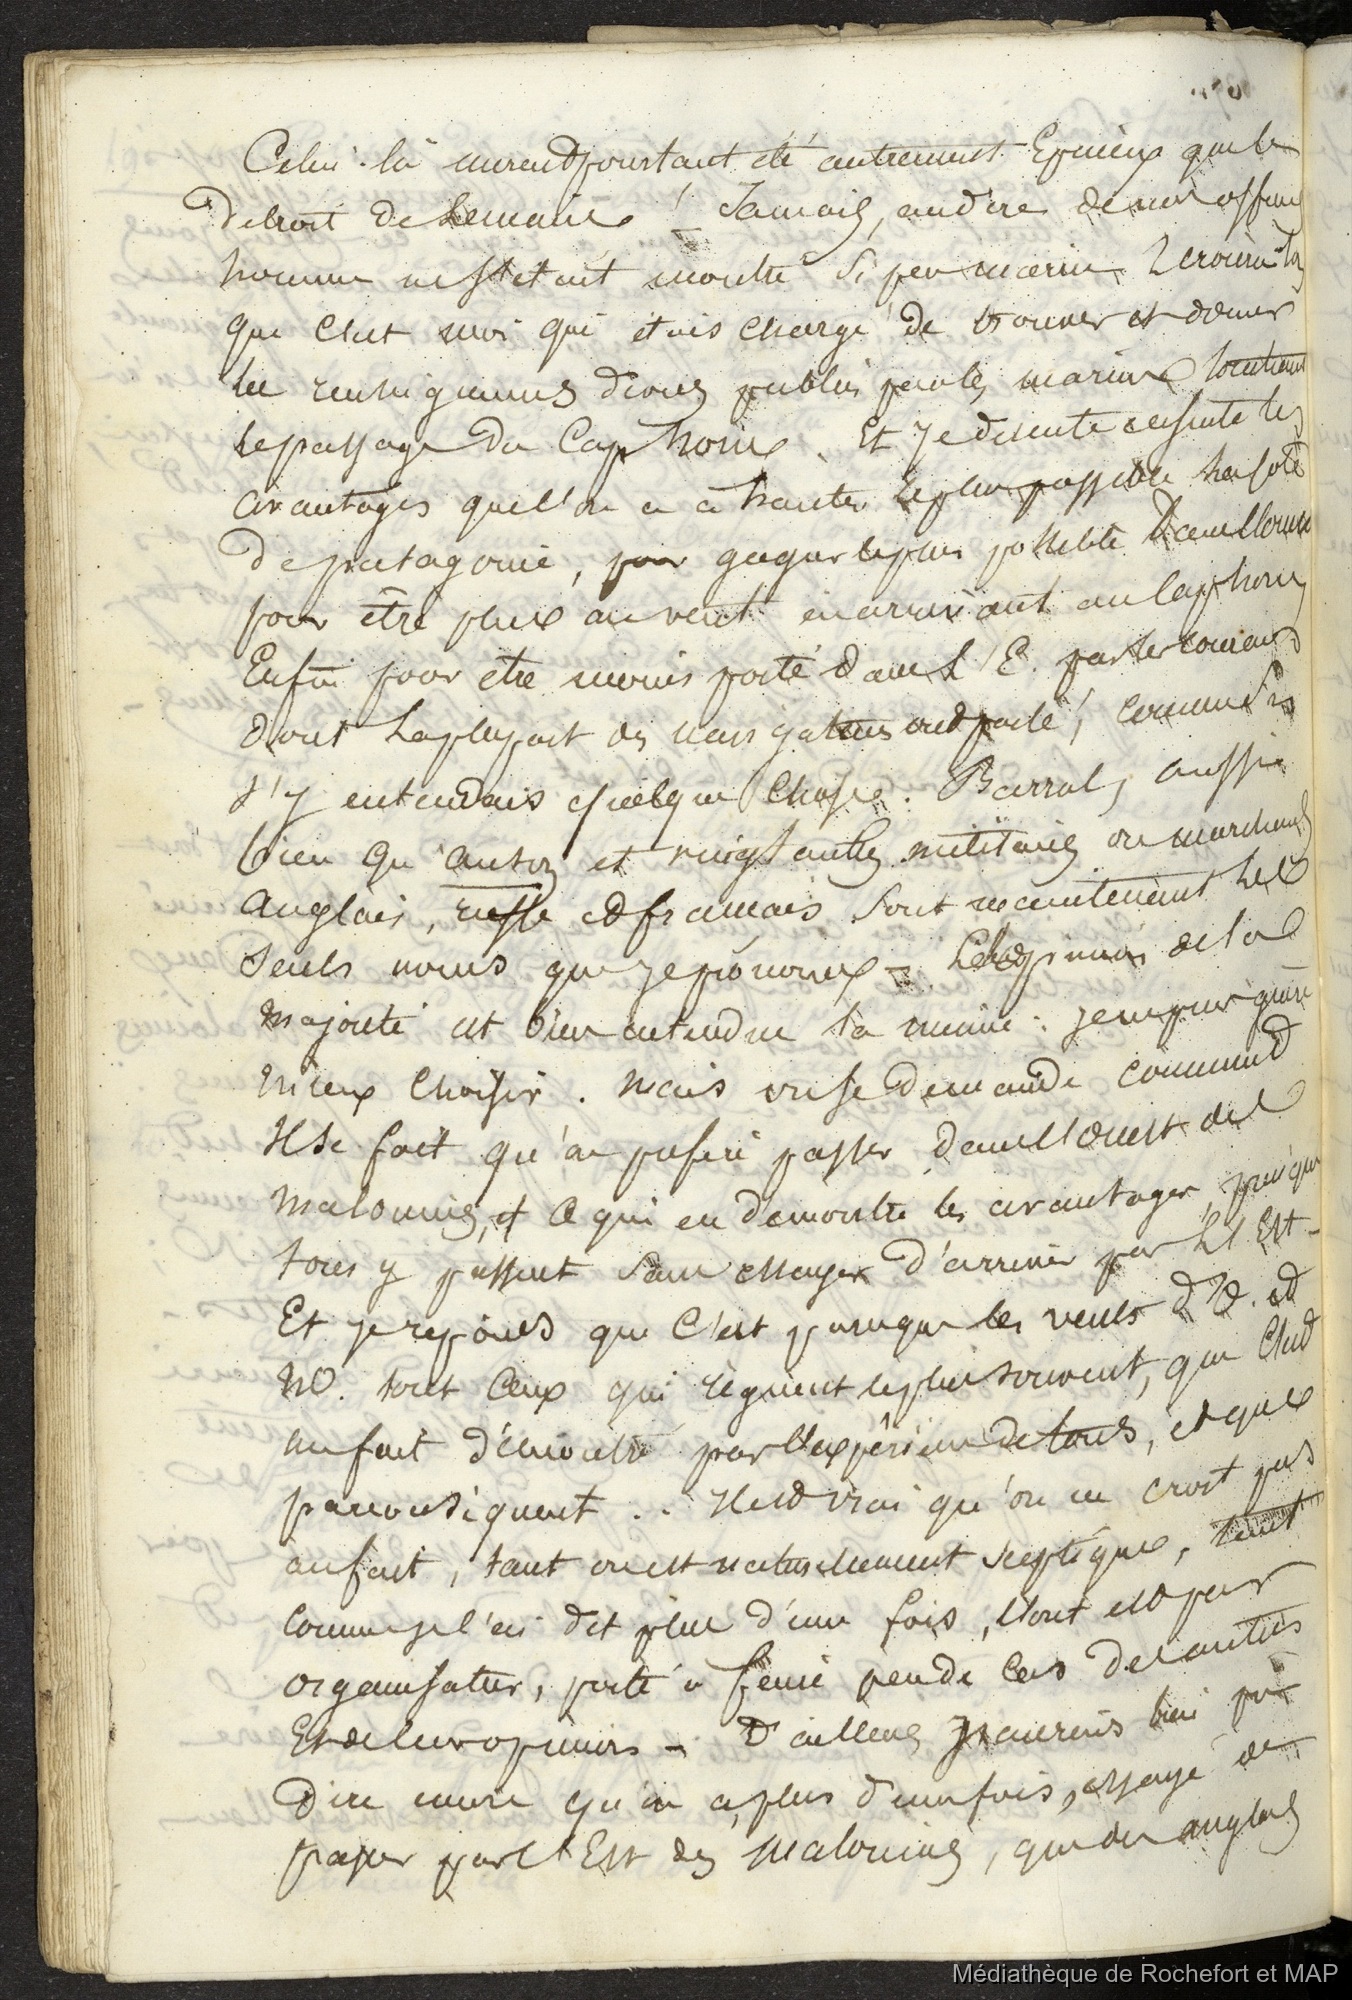 Celui-là aurait pourtant été autrement épineux que le
détroit de Lemaire ! Jamais, au dire de nos officiers
homme ne s'était montré si peu marin. Croirait-on
que c'est moi qui étais chargé de trouver et donner
les renseignemens divers publiés par les marins touchant
le passage du Cap horn. Et je discute ensuite les
avantages que l'on a à hanter le plus possible la côte
de patagonie, pour gagner le plus possible dans l'ouest
pour être plus au vent en arrivant au Cap horn
Enfin pour être moins porté dans l'E. par les courans
dont la plupart des navigateurs ont parlé, comme si
s'y entendais quelque chose. Barral, aussi
bien qu'anson et vingt autres militaires ou marchands
anglais, russe et français sont maintenant les
seuls noms que je prononce – L'opinion de la
majorité est bien entendue la mienne : je ne puis guère
mieux choisir. Mais on se demande comment
Il se fait qu'on préfère passer dans l'ouest des
malouines, et ce qui en démontre les avantages, puisque
tous y passent sans essayer d'arriver par l'Est –
Et je réponds que c'est parceque les vents d'O. et
NO. sont ceux qui règnent le plus souvent, que c'est
un fait démontré par l'expérience de tous, et que
par conséquent .. Il est vrai qu'on ne croit pas
au fait, tant on est naturellement sceptique, tant
comme je l'ai dit plus d'une fois, l'on est par
organisation, porté à faire peu de cas des autres
Et de leur opinions – D'ailleurs j'aurais bien pu
dire encore qu'on a, plus d'une fois, essayé de
passer par l'Est des Malouines, que des anglais
Médiathèque de Rochefort et MAP